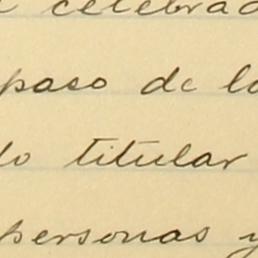 celebrad
paso de lo
do titular
personas y